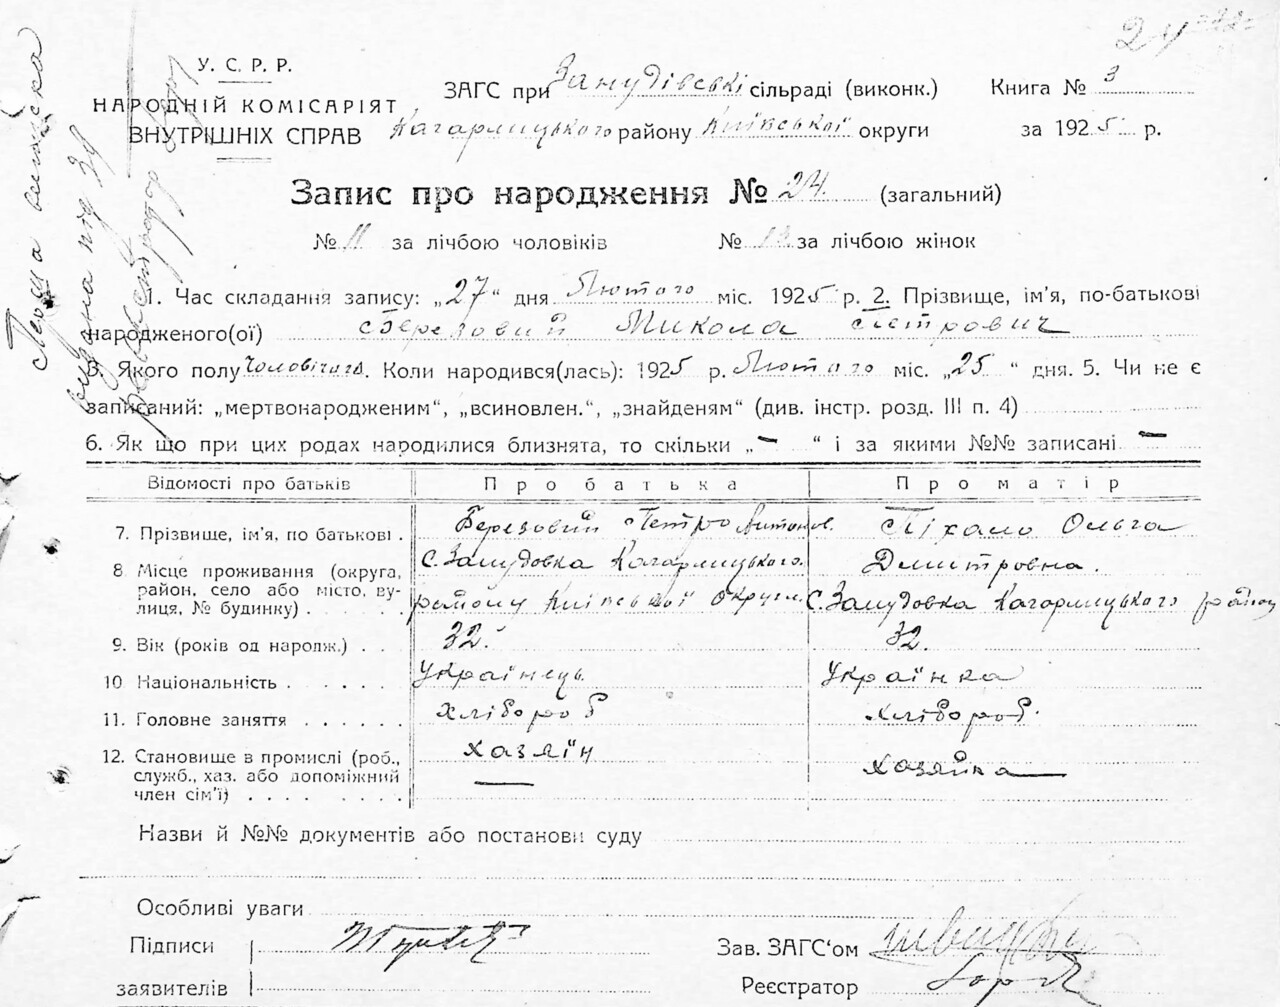 24
У. С. Р. Р.
НАРОДНІЙ КОМІСАРІЯТ
ВНУТРІШНІХ СПРАВ
ЗАГС при сільраді (виконк.) Книга № 3
Кагарлицького району Київської округи за 1925 р.
Запис про народження № 24. (загальний)
№ 11 за лічбою чоловіків № за лічбою жінок
1. Час складання запису: „27“ дня Лютого міс. 1925 р. 2. Прізвище, ім'я, по-батькові
народженого(ої) Березовий Микола Петрович
3. Якого полу Чоловічого. Коли народився(лась): 1925 р. Лютого міс. „25“ дня. 5. Чи не є
записаний: „мертвонародженим“, „всиновлен.“, „знайденям“ (див. інстр. розд. III п. 4)
6. Як що при цих родах народилися близнята, то скільки „–“ і за якими №№ записані –
Відомості про батьків Про батька Про матір
7. Прізвище, ім'я, по батькові . Березовий Петро Антонов. Піхало Ольга
Дмитровна.
8 Місце проживання (округа, район, село або місто, вулиця, № будинку) . . . . . с. Занудовка Кагарлицького.
району Київської округи. с. Занудовка Кагарлицького району
9. Вік (років од наролж.) . . 32. 32.
10 Національність . . . . . . Українець Українка
11. Головне заняття . . . . . . Хлібороб Хлібороб.
12. Становище в промислі (роб., служб., хаз. або допоміжний член сім'ї) . . . . . . . . Хазяїн — Хазяйка —
Назви й №№ документів або постанови суду
Особливі уваги
Підписи
заявителів
Зав. ЗАГС‘ом
Реєстратор